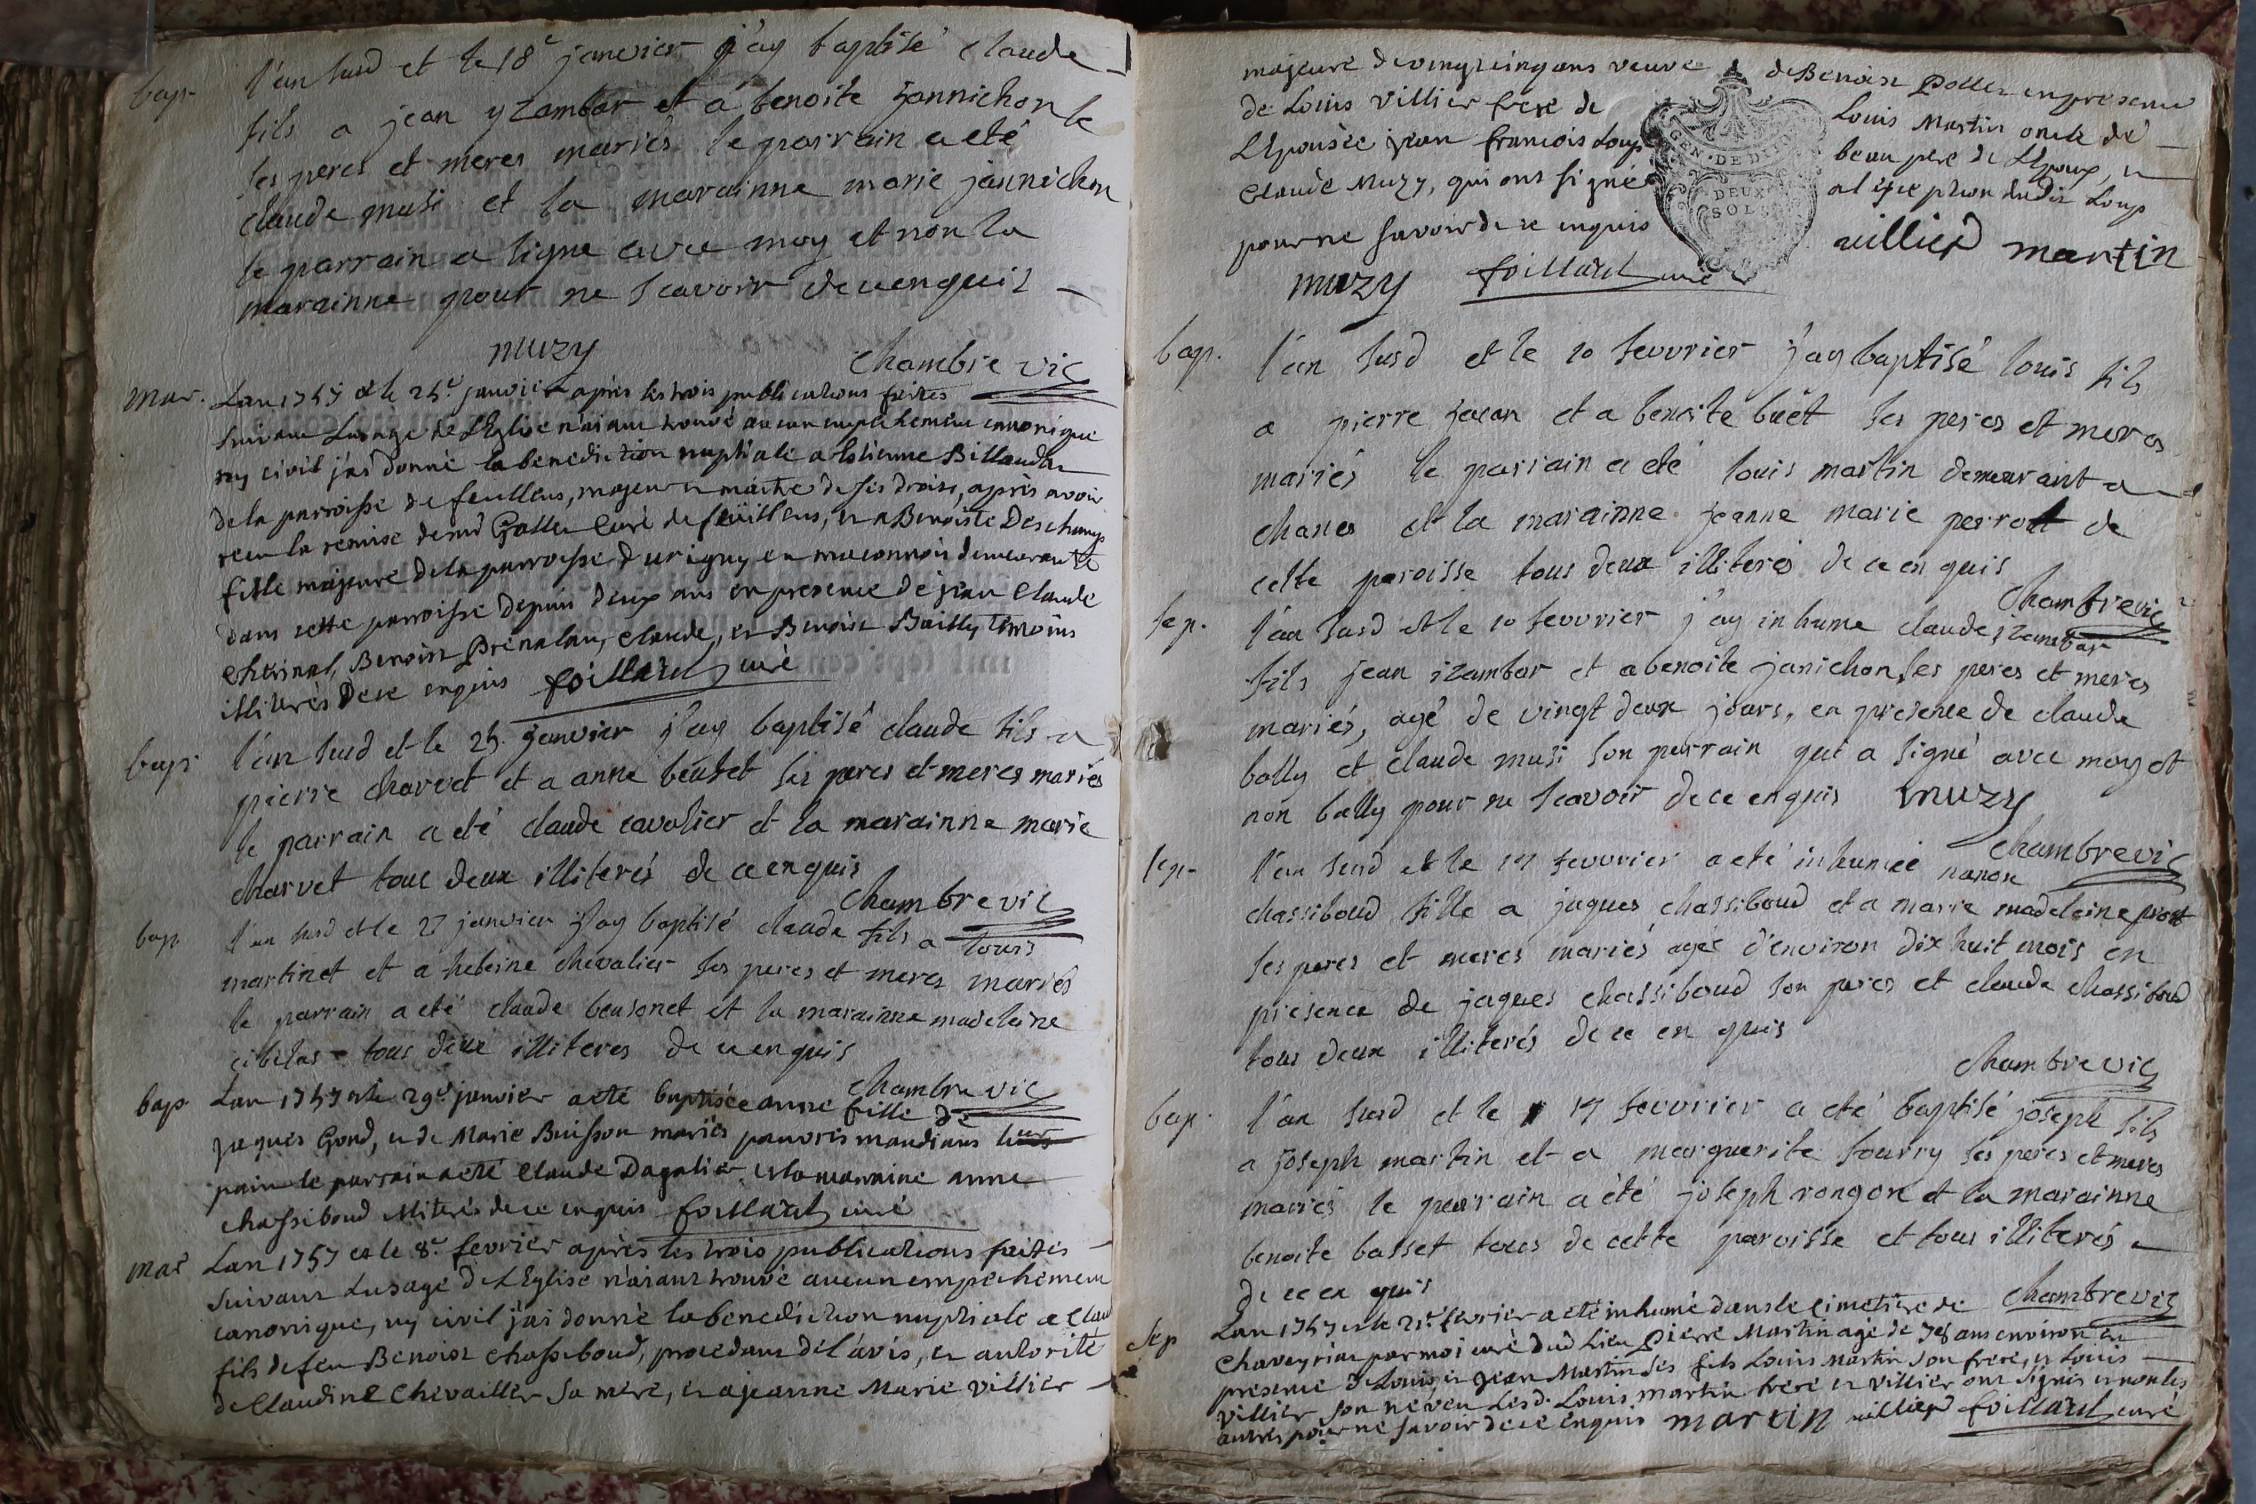 bap. l'an susd et le 18e janvier j'ay baptisé claude
fils a jean yzambar et a benoite jannichon le
ses peres et meres mariés le parrain a eté
claude musi et la marainne marie jannichon
le parrain a signe avec moy et non la
marainne pour ne scavoir de ce enquis
muzy chambre vic
mar. Lan 1757 et le 25e janvier après les trois publications faites
suivant Lusage de L'Eglise n'aiant trouvé aucun empechement canonique
ny civil j'ai donné la benediction nuptiale a Estienne Billaudet
de la parroisse de feullens, majeur et maitre de ses droits, après avoir
receu la remise de mr Galler curé de feüillens, et a Benoiste Deschamps
fille majeure de la parroisse d'urigny en maconnois demeurante
dans cette parroisse depuis deux ans en presence de jean Claude
Chevinal, Benoist Prenalan, Claude, et Benoist Bailly temoins
illiterés de ce enquis foillard curé
bap. l'an susd et le 25 janvier j'ay baptisé claude fils a
pierre charvet et a anne beuset ses peres et meres mariés
le parrain a eté claude cavalier et la marainne marie
charvet tous deux illiterés de ce enquis
chambre vic
bap l'an susd et le 27 janvier j'ay baptisé claude fils a louis
martinet et a heleine chevalier ses peres et meres mariés
le parrain a eté claude beusonet et la marainne madeleine
cibelas tous deux illiteres de ce enquis
chambre vic
bap Lan 1757 et le 29e janvier a eté baptisée anne fille de
jaques Gond, et de Marie Buisson mariés pauvres mandians leurs
pain le parrain a eté Claude Dagalier et la marraine anne
chassiboud illiterés de ce enquis foillard curé
mar Lan 1757 et le 8e fevrier après les trois publications faites
suivant Lusage de L'Eglise n'aiant trouvé aucun empechement
canonique, ny civil j'ai donné la benediction nuptiale a Clau
fils de feu Benoist chassiboud, procedant de l'avis, et autorité
de Claudine Chevaillier sa mere, et a jeanne Marie villier
majeure de vingt cinq ans veuve de Benoist Poller en presence
de Louis villier frere de Louis Martin oncle de
L'Epousée jean francois Loup beau pere de L'Epoux, et
Claude Muzy, qui ont signé al exception dudit Loup
pour ne savoir de ce enquis villier martin
GEN. DE DIJON
DEUX
SOLS
muzy foillard curé
bap. l'an susd et le 10 fevvrier j'ay baptisé louis fils
a pierre jacan et a benoite buët ses peres et meres
mariés le parrain a eté louis martin demeurant a
chanes et la marainne jeanne marie perrout de
cette paroisse tous deux illiterés de ce en quis
chambre vic
sep. l'an susd et le 10 fevvrier j'ay inhume claude izambar
fils jean izambar et a benoite janichon, ses peres et meres
mariés, agé de vingt deux jours, en presence de claude
bally et claude musi son parrain qui a signé avec moy et
non bally pour ne scavoir de ce enquis muzy
chambre vic
sep. l'an susd et le 17 fevvrier a eté inhumée nanon
chassiboud fille a jaques chassiboud et a marie madeleine prost
ses peres et meres mariés agée d'environ dix huit mois en
presence de jaques chassiboud son peres et claude chassiboud
tous deux illiterés de ce en quis
chambre vic
bap. l'an susd et le 17 fevvrier a eté baptisé joseph fils
a joseph martin et a marguerite fourry ses peres et meres
mariés le parrain a été joseph rongon et la marainne
benoite basset tous de cette paroisse et tous illiterés
de ce en quis chambre vic
sep Lan 1757 et le 21e fevrier a eté inhumé dans le cimetiere de
Chaveyriat par moi curé dud Lieu Pierre Martin agé de 78 ans environ en
presence de Louis et jean Martin ses fils Louis Martin son frere, et Louis
villier son neveu Lesd. Louis martin frere et villier ont signés et non les
autres pour ne savoir de ce enquis martin villier foillard curé